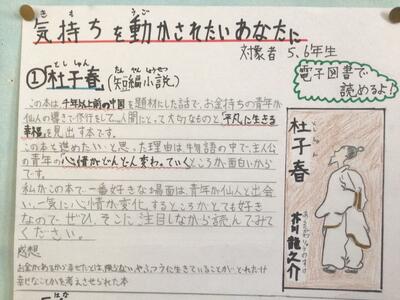 気持ちを動かされたいあなたに
きも うご
対象者 5、6年生
とししゅん たんぺんしょうせつ
①「杜子春」(短編小説)
電子図書で
読めるよ!
この本は千年以上前の中国を題材にした話で、お金持ちの青年が
仙人の導きで修行をして、人間にとって大切なものと「平凡に生きる
幸福」を見出す本です。
この本を進めたい!と思った理由は物語の中で、主人公
の青年の心情がどんどん変わっていくところが面白いから
です。
私がこの本で一番好きな場面は、青年が仙人と出会
い、一気に心情が変化するところがとても好き
なのでぜひ、そこに注目しながら読んでみて
ください。
感想
お金があるから幸せだとは限らない。ふつうに生きていることがどれだけ
幸せなことかを考えさせられた本
杜子春
芥川龍之介